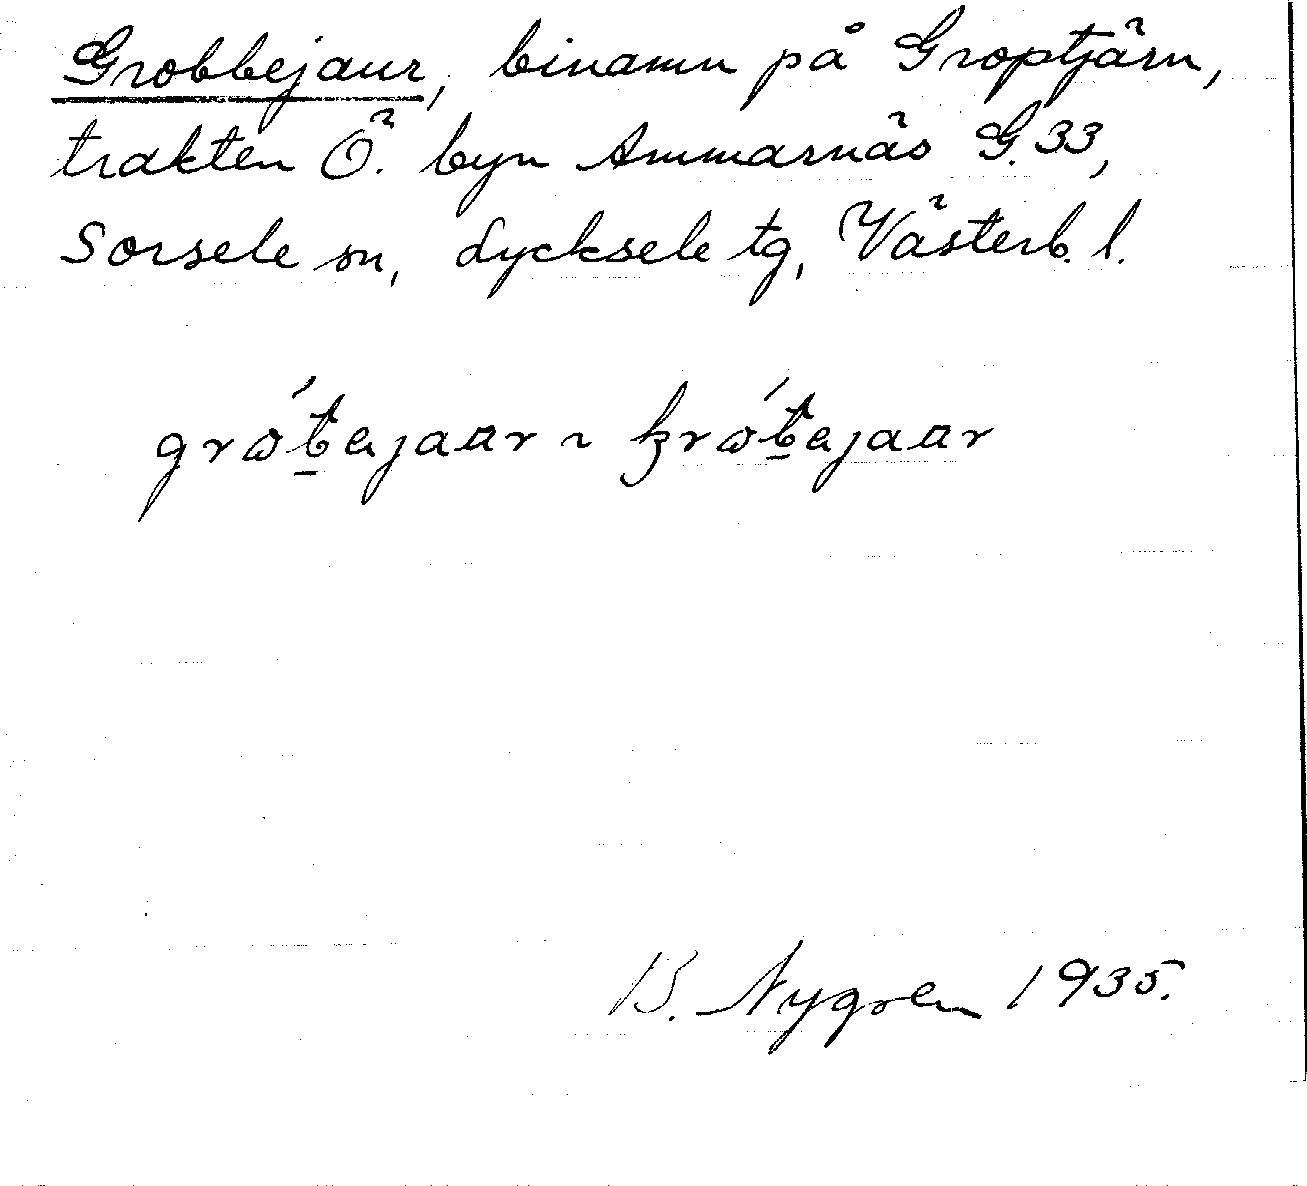 Grobbejaur, binamn på Groptjärn,
trakten Ö. byn Ammarnäs G. 33,
Sorsele sn, Lycksele tg, Västerb. l.
B. Nygren 1935.